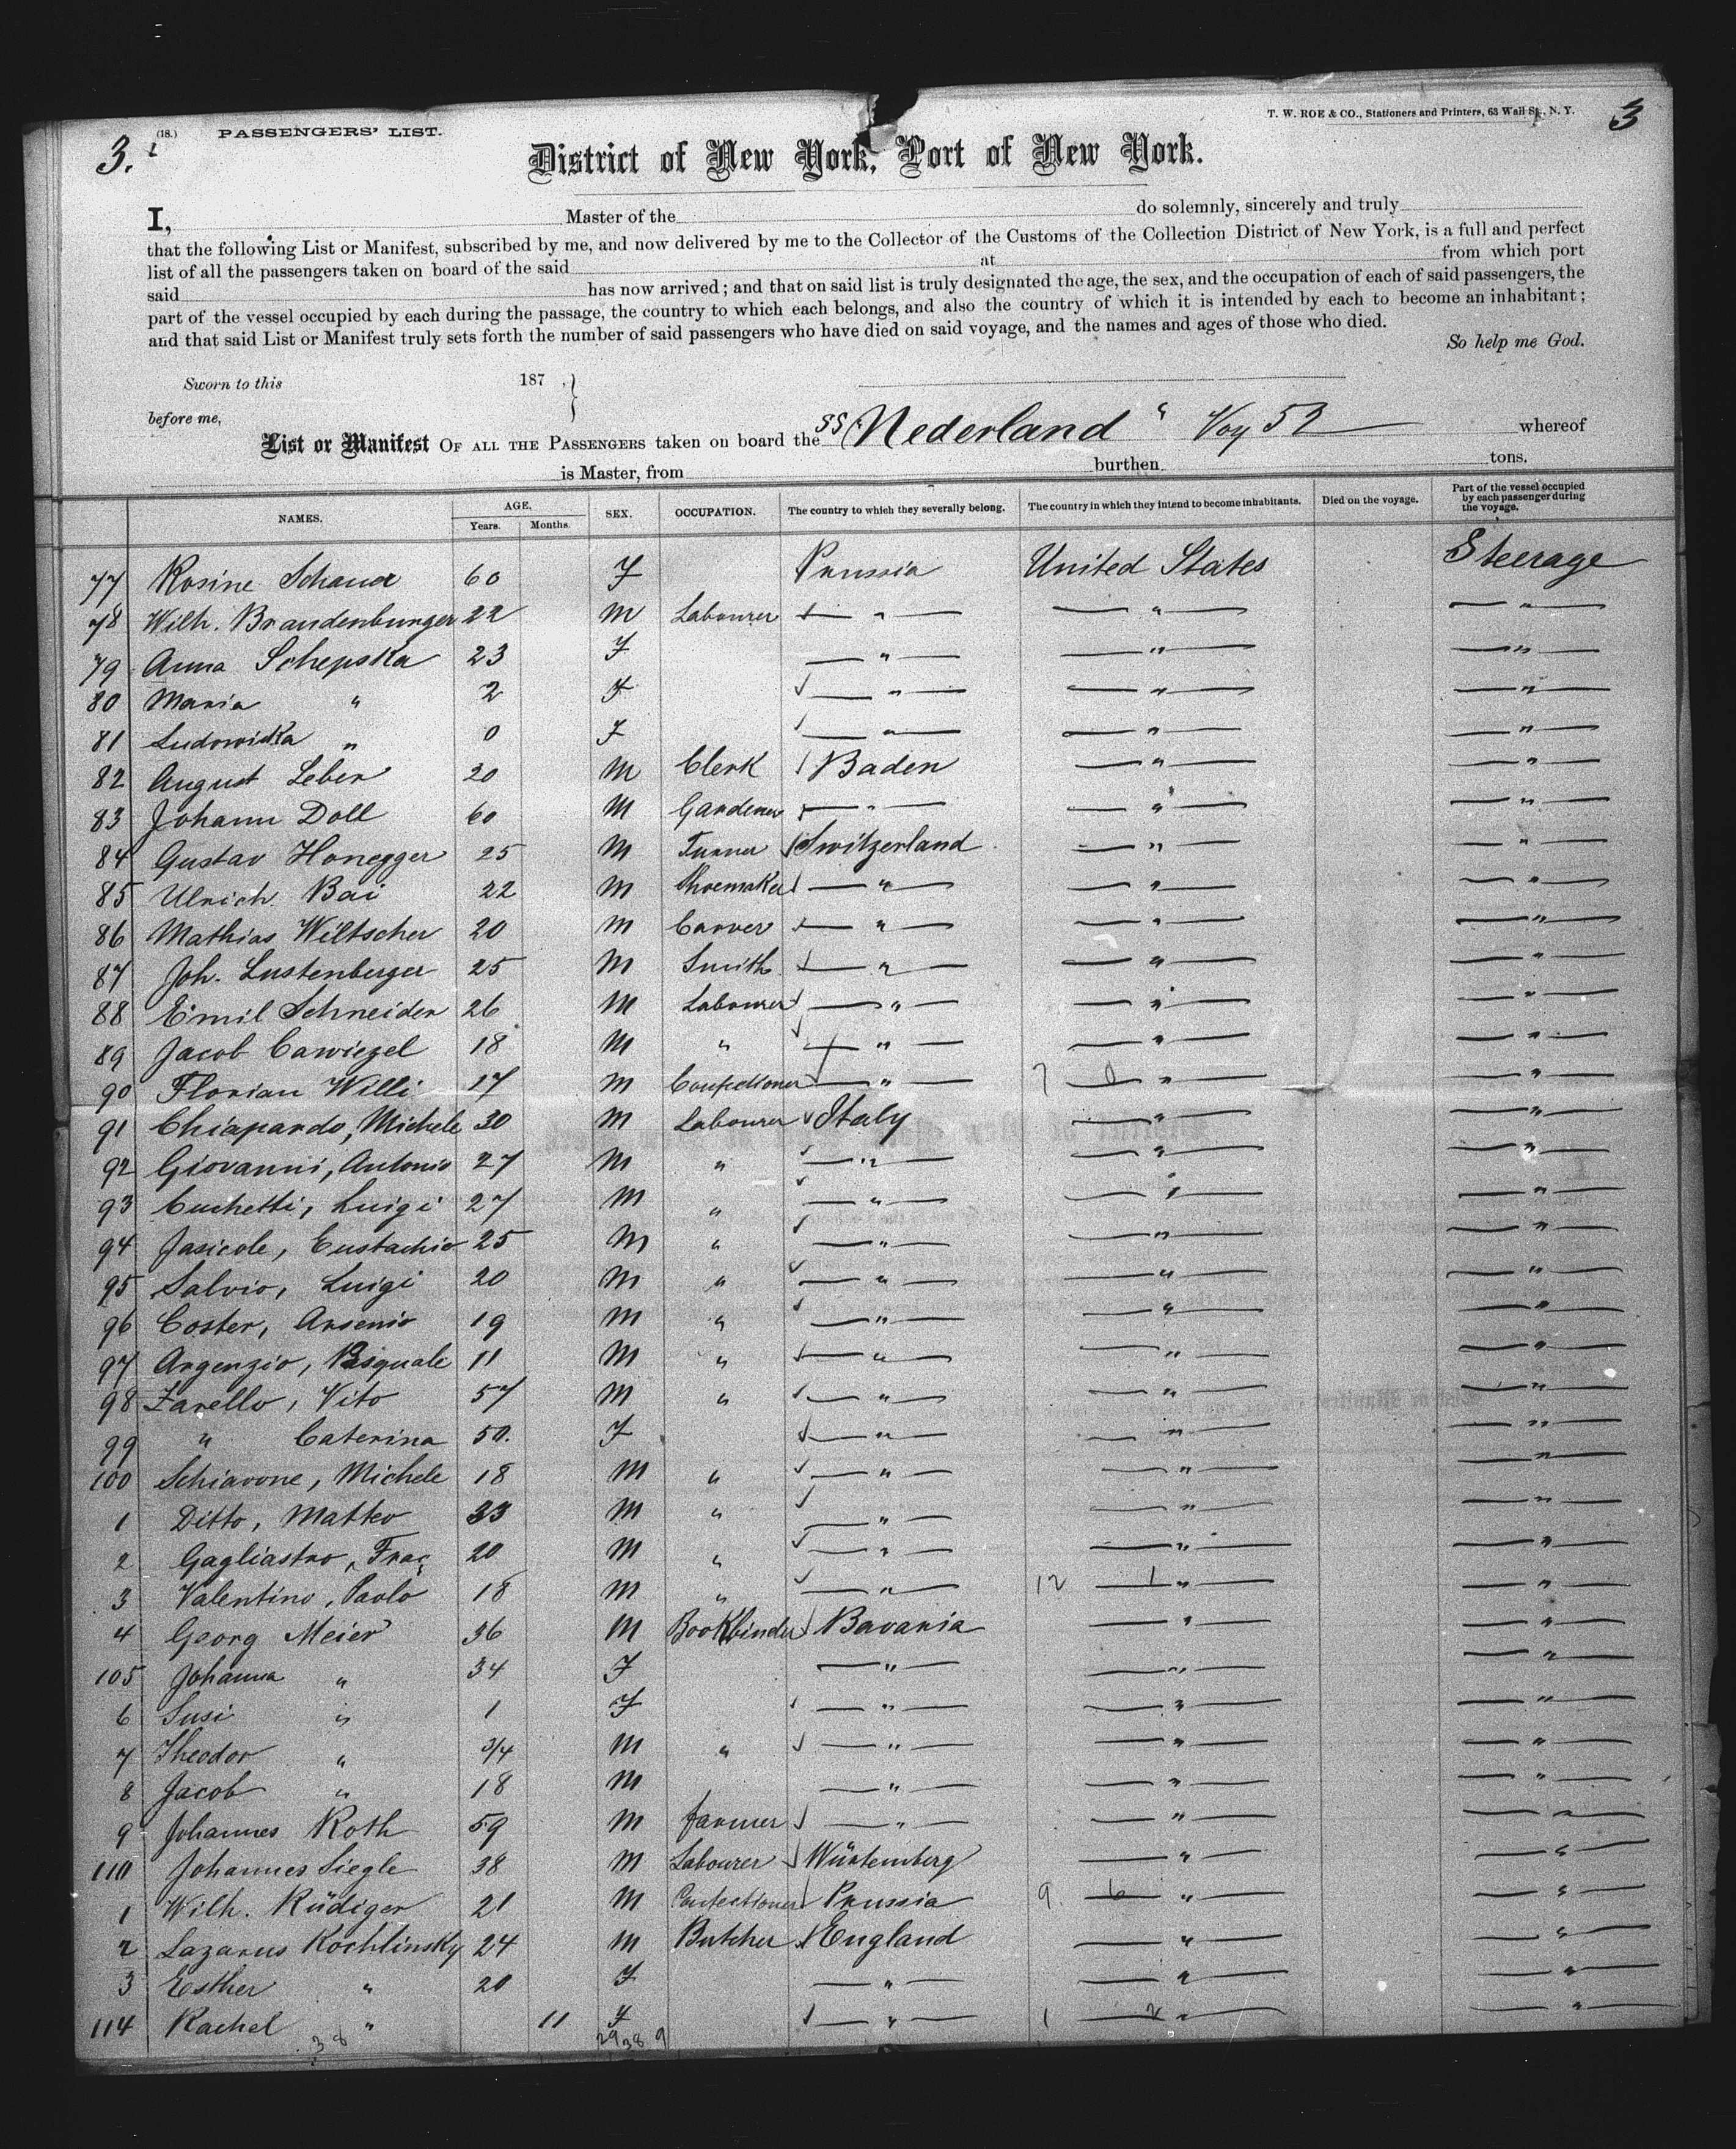 3. (18.) PASSENGERS' LIST. T. W. ROE & CO., Stationers and Printers, 63 Wall St., N. Y. 3
District of New York, Port of New York.
I, Master of the do solemnly, sincerely and truly
that the following List or Manifest, subscribed by me, and now delivered by me to the Collector of the Customs of the Collection District of New York, is a full and perfect
list of all the passengers taken on board of the said at from which port
said has now arrived; and that on said list is truly designated the age, the sex, and the occupation of each of said passengers, the
part of the vessel occupied by each during the passage, the country to which each belongs, and also the country of which it is intended by each to become an inhabitant;
and that said List or Manifest truly sets forth the number of said passengers who have died on said voyage, and the names and ages of those who died.
So help me God.
Sworn to this 187 , }
before me,
List or Manifest OF ALL THE PASSENGERS taken on board the SS "Nederland" Voy 52 whereof
is Master, from burthen tons.
NAMES. AGE. Years. Months. SEX. OCCUPATION. The country to which they severally belong. The country in which they intend to become inhabitants. Died on the voyage. Part of the vessel occupied by each passenger during the voyage.
77 Rosine Schauer 60 F Prussia United States Steerage
78 Wilh. Brandenburger 22 M Labourer " " "
79 Anna Schepska 23 F " " "
80 Maria " 2 F " " "
81 Ludowicka " 0 F " " "
82 August Leber 20 M Clerk Baden " "
83 Johann Doll 60 M Gardener " " "
84 Gustav Honegger 25 M Turner Switzerland " "
85 Ulrich Bai 22 M Shoemaker " " "
86 Mathias Wiltscher 20 M Carver " " "
87 Joh. Lustenberger 25 M Smith " " "
88 Emil Schneider 26 M Labourer " " "
89 Jacob Cawiezel 18 M " " " "
90 Florian Willi 17 M Confectioner " 7 0 " "
91 Chiapardo, Michele 30 M Labourer Italy " "
92 Giovanni, Antonio 27 M " " " "
93 Cuchetti, Luigi 27 M " " " "
94 Jasicole, Eustachio 25 M " " " "
95 Salvio, Luigi 20 M " " " "
96 Coster, Arsenio 19 M " " " "
97 Argenzio, Pasquale 11 M " " " "
98 Zarello, Vito 57 M " " " "
99 " Caterina 50. F " " "
100 Schiavone, Michele 18 M " " " "
1 Ditto, Matteo 33 M " " " "
2 Gagliastro, Frac 20 M " " " "
3 Valentino, Paolo 18 M " " 12 1 " "
4 Georg Meier 36 M Bookbinder Bavaria " "
105 Johanna " 34 F " " "
6 Susi " 1 F " " "
7 Theodor " 3/4 M " " " "
8 Jacob " 18 M " " "
9 Johannes Roth 59 M farmer " " "
110 Johannes Siegle 38 M Labourer Würtemberg " "
1 Wilh. Rüdiger 21 M Confectioner Prussia 9. 6 " "
2 Lazarus Kochlinsky 24 M Butcher England " "
3 Esther " 20 F " " "
114 Rachel " 11 F " 1 2 " "
38 29 38 9